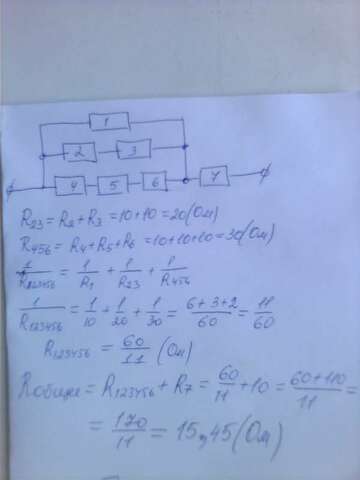 1
2 3
4 5 6 7
R23 = R2 + R3 = 10+10 = 20 (Ом)
R456 = R4 + R5 + R6 = 10+10+10 = 30 (Ом)
1/R123456 = 1/R1 + 1/R23 + 1/R456
1/R123456 = 1/10 + 1/20 + 1/30 = 6+3+2/60 = 11/60
R123456 = 60/11 (Ом)
Rобщее = R123456 + R7 = 60/11 + 10 = 60+110/11 =
= 170/11 = 15,45 (Ом)